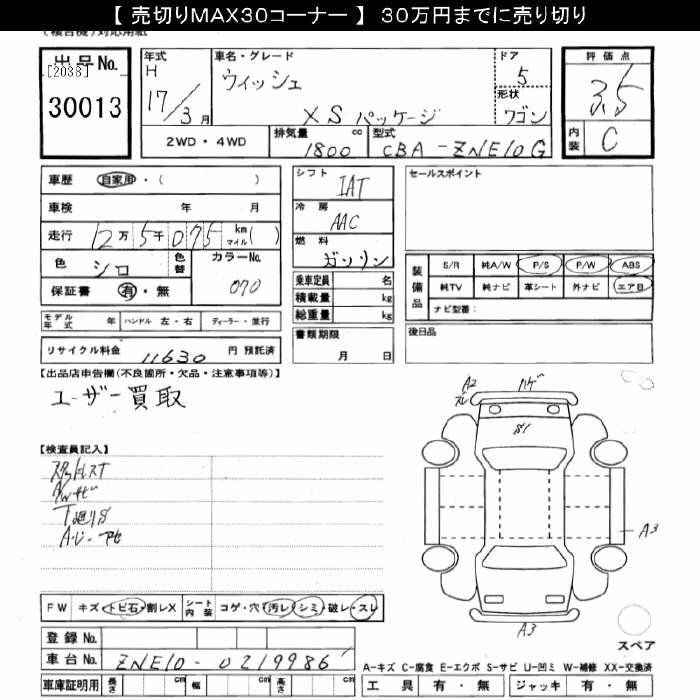 【 売切りMAX30コーナー 】 30万円までに売り切り
(複合機)対応用紙
出品No.
[2038]
30013
年式
H
17/3月
車名・グレード
ウィッシュ
XS パッケージ
ドア
5
形状
ワゴン
評価点
3.5
内装
C
2WD・4WD
排気量
1800
cc
型式
CBA-ZNE10G
車歴
自家用・( )
車検 年 月
走行 12万5千075 km マイル( )
色 シロ
色替
カラーNo.
070
保証書 有・無
モデル年式 年
ハンドル 左・右
ディーラー・並行
リサイクル料金 11630 円 預託済
シフト
IAT
冷房
AAC
燃料
ガソリン
乗車定員 名
積載量 kg
総重量 kg
書類期限
月 日
セールスポイント
装備品
S/R 純A/W P/S P/W ABS
純TV 純ナビ 革シート 外ナビ エアB
ナビ型番:
後日品
【出品店申告欄(不良箇所・欠品・注意事項等)】
ユーザー買取
【検査員記入】
T廻りS
A2
ズレ
ハゲ
S1
A3
A3
スペア
FW キズ・トビ石・割レX
シート内装 コゲ・穴・汚レ・シミ・破レ・スレ
登録No.
車台No. ZNE10-0219986
車庫証明用 長さ cm 幅 cm 高さ cm
A-キズ C-腐食 E-エクボ S-サビ U-凹ミ W-補修 XX-交換済
工具 有・無 ジャッキ 有・無